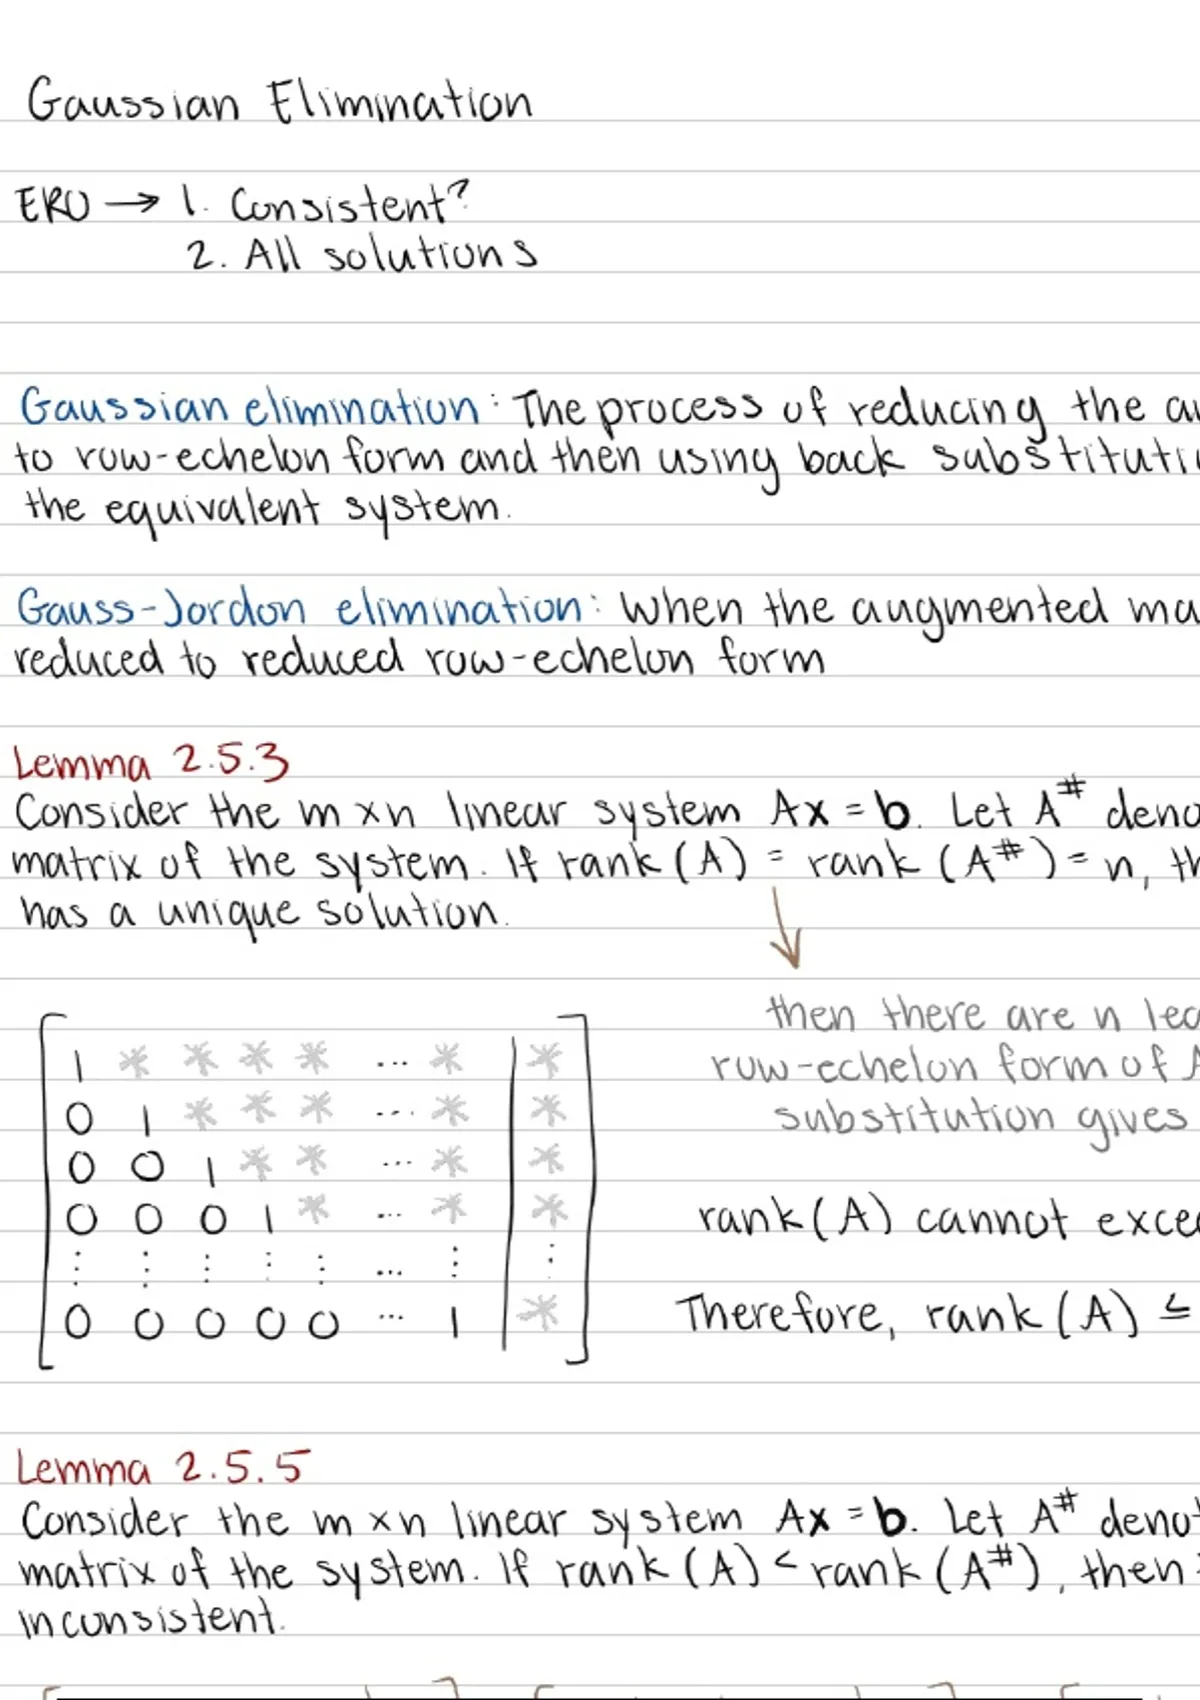 Gaussian Elimination
ERO → 1. Consistent?
2. All solutions
Gaussian elimination: The process of reducing the
to row-echelon form and then using back
the equivalent system.
Gauss-Jordon elimination: When the augmented
reduced to reduced row-echelon form
Lemma 2.5.3
Consider the m×n linear system Ax = b. Let A#
matrix of the system. If rank (A) = rank (A#) = n,
has a unique solution.
then there are n
row-echelon form of
substitution gives
rank(A) cannot
Therefore, rank (A) ≤
1 * * * * ... * | *
0 1 * * * ... * | *
0 0 1 * * ... * | *
0 0 0 1 * ... * | *
⋮ ⋮ ⋮ ⋮ ⋮ ... ⋮ | ⋮
0 0 0 0 0 ... 1 | *
Lemma 2.5.5
Consider the m×n linear system Ax = b. Let A#
matrix of the system. If rank (A) < rank (A#), then
inconsistent.